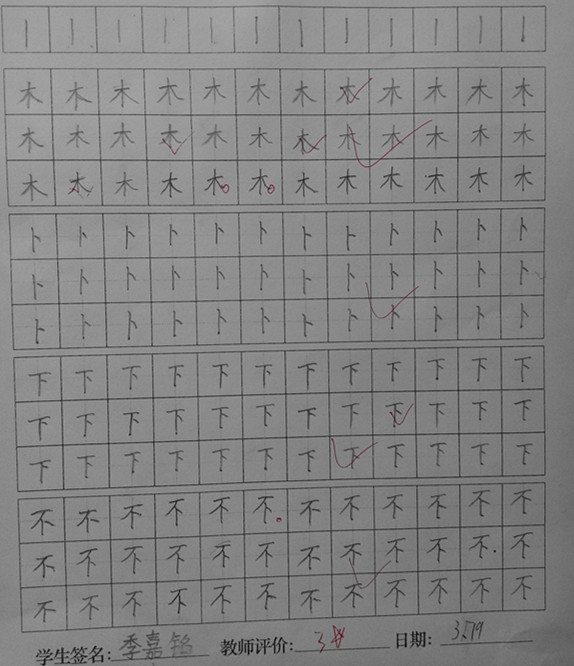 丨丨丨丨丨丨丨丨丨丨丨丨
木木木木木木木木木木木木
木木木木木木木木木木木木
木木木木木木木木木木木木
卜卜卜卜卜卜卜卜卜卜卜卜
卜卜卜卜卜卜卜卜卜卜卜卜
卜卜卜卜卜卜卜卜卜卜卜卜
下下下下下下下下下下下下
下下下下下下下下下下下下
下下下下下下下下下下下下
不不不不不不不不不不不不
不不不不不不不不不不不不
不不不不不不不不不不不不
学生签名:季嘉铭 教师评价:3☆ 日期: